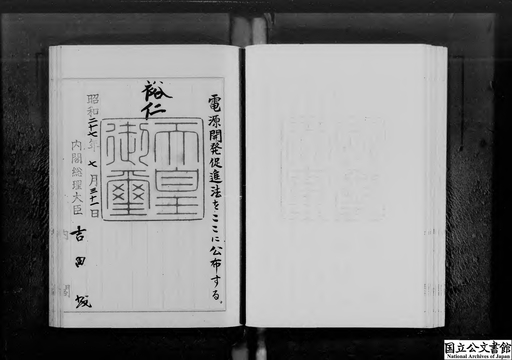 電源開発促進法をここに公布する。
裕仁
天皇御璽
昭和二十七年七月三十一日
内閣総理大臣 吉田茂
国立公文書館
National Archives of Japan